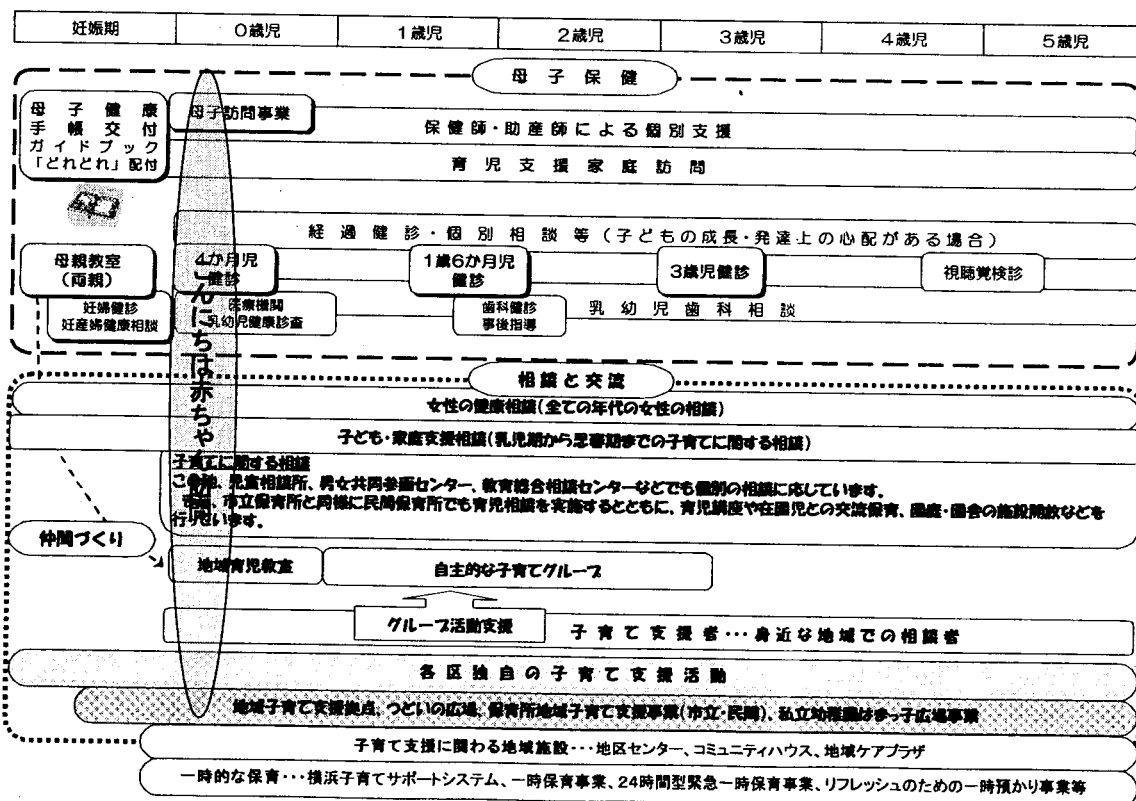 妊娠期 0歳児 1歳児 2歳児 3歳児 4歳児 5歳児
母子保健
母子健康
手帳交付
ガイドブック
「どれどれ」配付
母子訪問事業
保健師・助産師による個別支援
育児支援家庭訪問
経過健診・個別相談等(子どもの成長・発達上の心配がある場合)
母親教室
(両親)
4か月児
健診
1歳6か月児
健診
3歳児健診
視聴覚検診
妊婦健診
妊産婦健康相談
医療機関
乳幼児健康診査
歯科健診
事後指導
乳幼児歯科相談
こんにちは赤ちゃん訪問
相談と交流
女性の健康相談(全ての年代の女性の相談)
子ども・家庭支援相談(乳児期から思春期までの子育てに関する相談)
子育てに関する相談
児童相談所、男女共同参画センター、教育総合相談センターなどでも個別の相談に応じています。
市立保育所と同様に民間保育所でも育児相談を実施するとともに、育児講座や在園児との交流保育、園庭・園舎の施設開放などを
行っています。
仲間づくり
地域育児教室
自主的な子育てグループ
グループ活動支援
子育て支援者・・・身近な地域での相談者
各区独自の子育て支援活動
地域子育て支援拠点、つどいの広場、保育所地域子育て支援事業(市立・民間)、私立幼稚園はまっ子広場事業
子育て支援に関わる地域施設・・・地区センター、コミュニティハウス、地域ケアプラザ
一時的な保育・・・横浜子育てサポートシステム、一時保育事業、24時間型緊急一時保育事業、リフレッシュのための一時預かり事業等